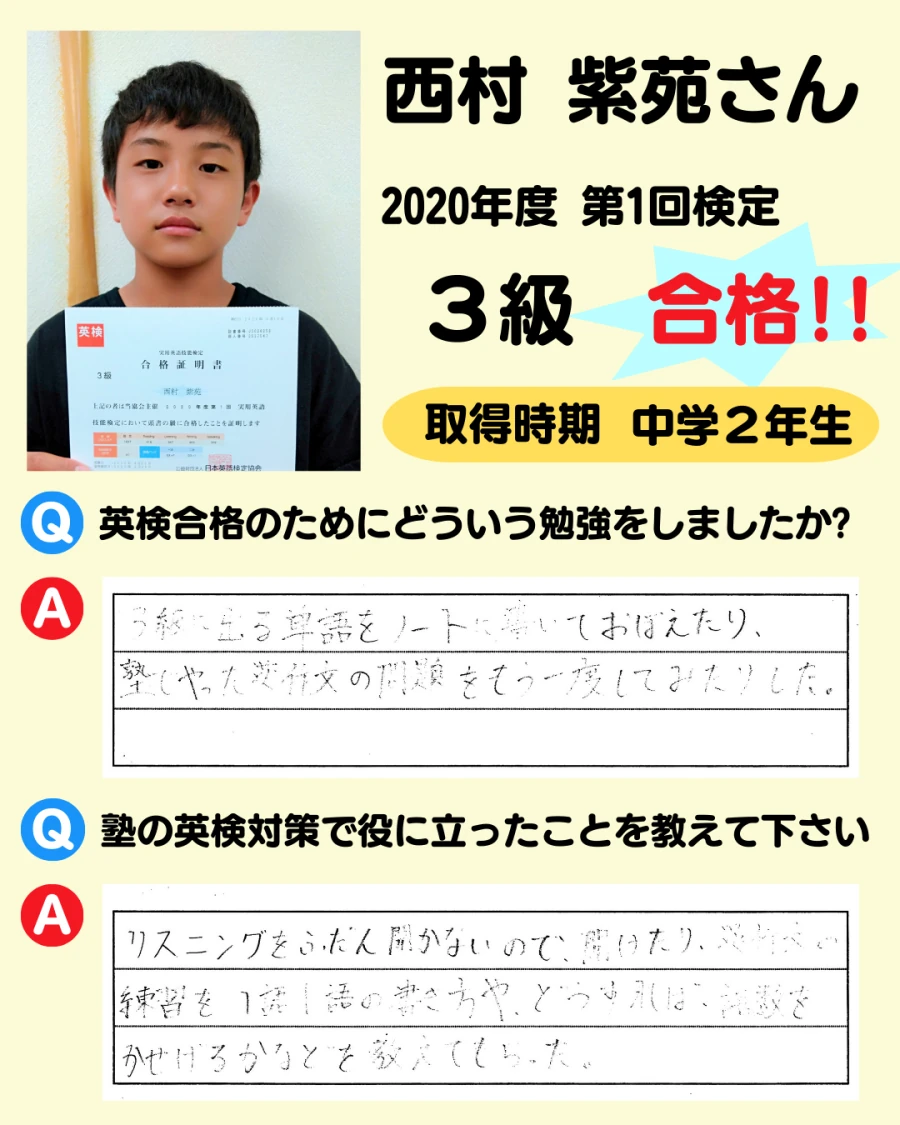 西村 紫苑さん
2020年度 第1回検定
3級 合格!!
取得時期 中学2年生
英検
実用英語技能検定
合格証明書
3級
西村 紫苑
上記の者は当協会主催 2020年度第1回 実用英語
技能検定において頭書の級に合格したことを証明します
日本英語検定協会
Q 英検合格のためにどういう勉強をしましたか?
A 3級に出る単語をノートに書いておぼえたり、
塾でやった英作文の問題をもう一度してみたりした。
Q 塾の英検対策で役に立ったことを教えて下さい
A リスニングをふだん聞かないので、聞けたり、英作文の
練習を1語1語の書き方や、どうすれば、語数を
かせげるかなどを教えてもらった。